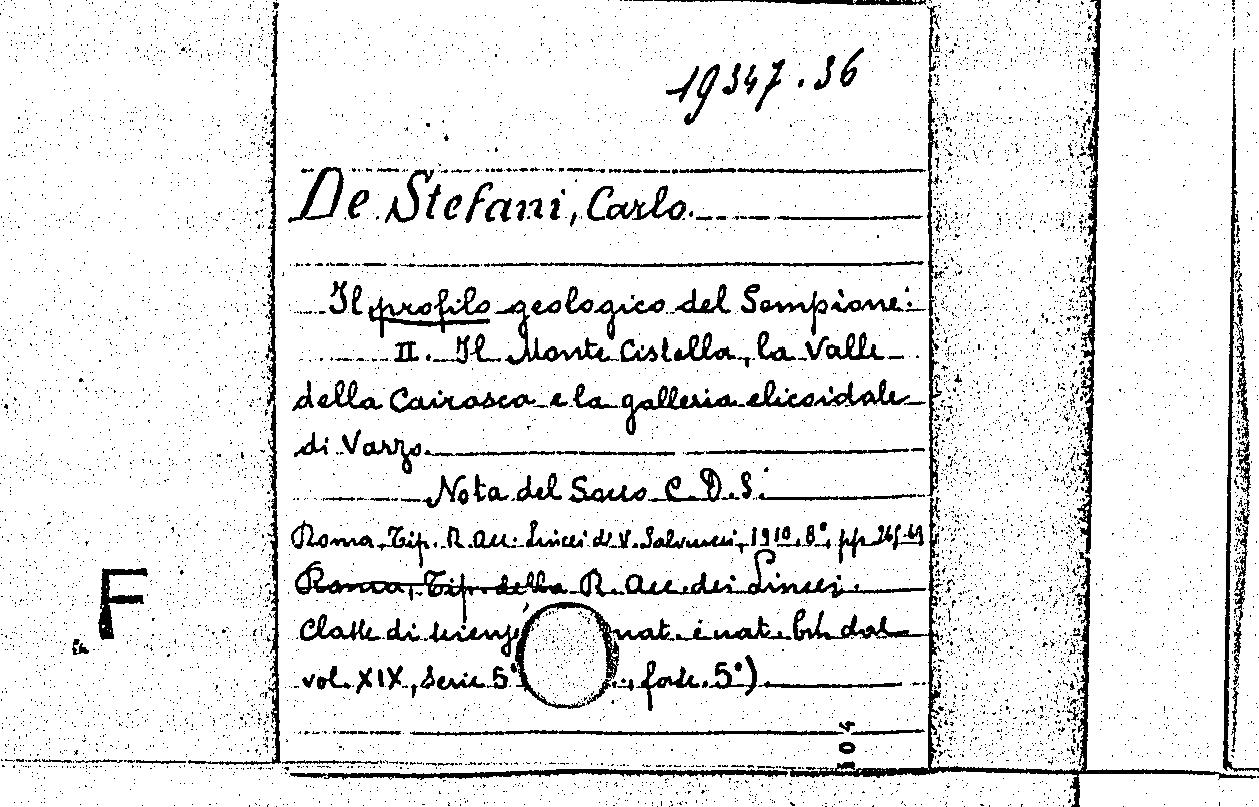 19347.36
De Stefani, Carlo.
Il profilo geologico del Sempione:
II. Il Monte Cistella, la Valle
della Cairasca e la galleria elicoidale
di Varzo.
Nota del Socio C. D. S.
Roma, Tip. R. Acc. Lincei di V. Salviucci, 1910, 8°, pp.
Roma, Tip. della R. Acc. dei Lincei.
Classe di nat.
vol. XIX, Serie 5° fasc. 5°)
F
104